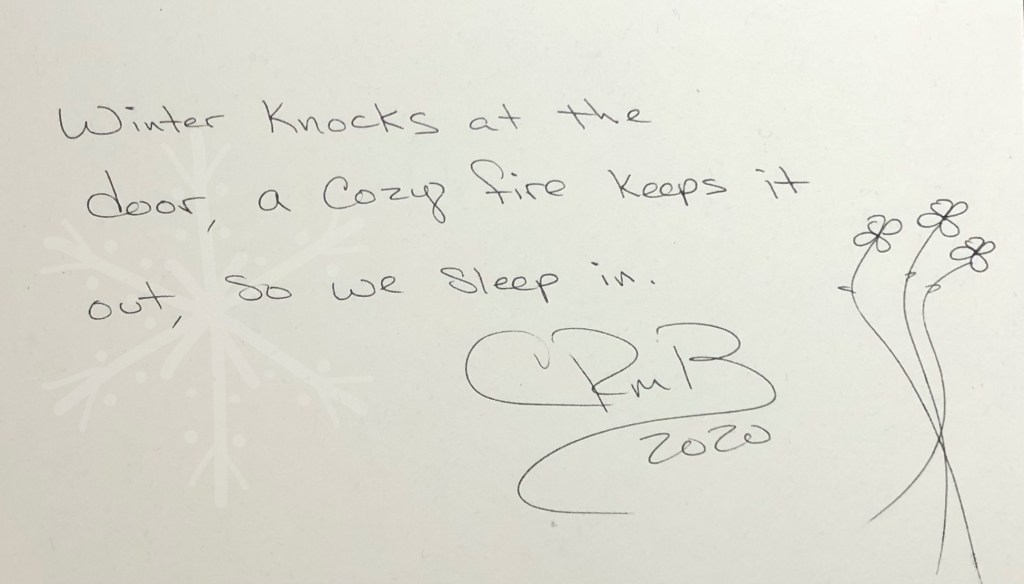 Winter Knocks at the
door, a Cozy fire Keeps it
out, so we Sleep in.
CRmB
2020